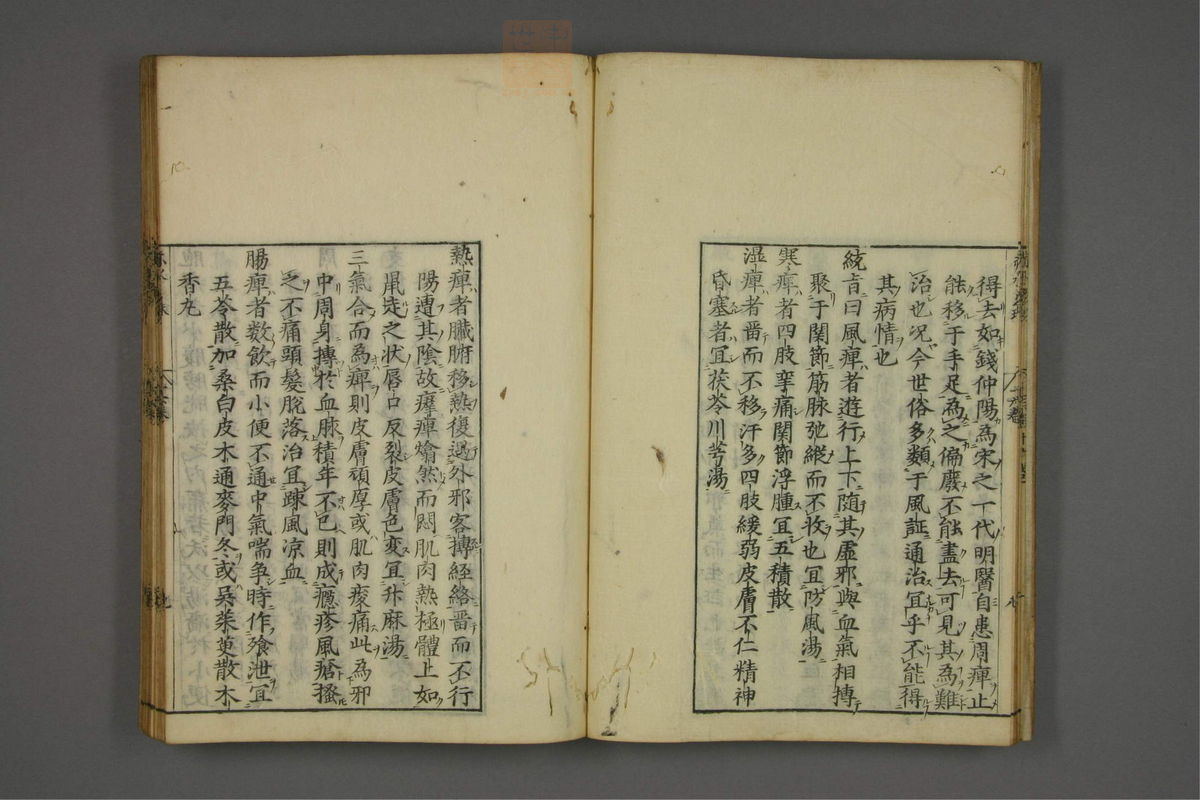 得去如錢仲陽為宋之一代明醫自患周痺止
能移于手足為之偏廢不能盡去可見其為難
治也况今世俗多類于風証通治宜乎不能得
其病情也
統旨曰風痺者遊行上下随其虛邪與血氣相搏
聚于関節筋脉弛縱而不收也宜防風湯
寒痺者四肢挛痛関節浮腫宜五積散
湿痺者畱而不移汗多四肢緩弱皮膚不仁精神
昏塞者宜茯苓川芎湯
熱痺者臟腑移熱復遇外邪客搏経絡畱而不行
陽遭其陰故㿏痺熻然而悶肌肉熱極體上如
鼠走之状唇口反裂皮膚色変宜升麻湯
三氣合而為痺則皮膚頑厚或肌肉痠痛此為邪
中周身搏於血脉積年不已則成癮疹風瘡搔
之不痛頭髮脫落治宜踈風凉血
腸痺者数飲而小便不通中氣喘争時作飱泄宜
五苓散加桑白皮木通麥門冬或吳茱萸散木
香丸